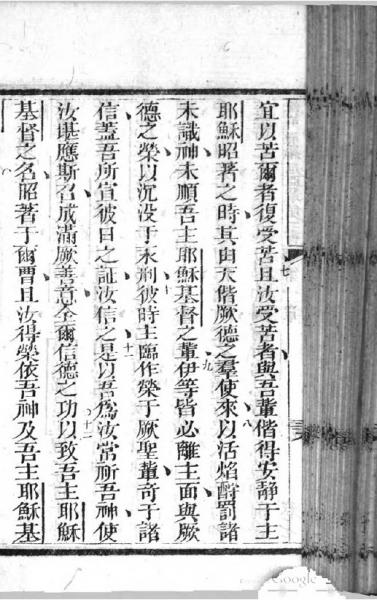 宜以苦爾者復受苦且汝受苦者與吾輩偕得安靜于主
耶穌昭著之時其由天偕厥德之羣使來以活焰酹罰諸
未識神未順吾主耶穌基督之輩伊等皆必離主面與厥
德之榮以沉没于永刑彼時主臨作榮于厥聖輩奇于諸
信蓋吾所宣彼日之証汝信之是以吾為汝常祈吾神使
汝堪應斯召成滿厥善意全爾信德之功以致吾主耶穌
基督之名昭著于爾曹且汝得榮依吾神及吾主耶穌基
七
八
九
十
十一
十二
Google